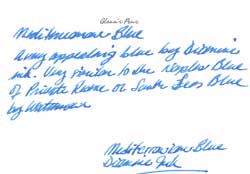 Classic Pens
Mediterranean Blue
A very appealing blue by Diamine
ink. Very similar to the regular Blue
of Private Reserve or South Seas Blue
by Waterman
Mediterranean Blue
Diamine Ink